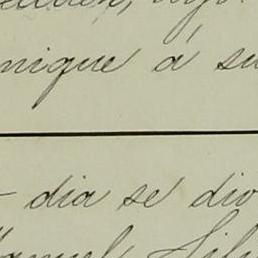 nique á su
dia se dio
Manuel Silv